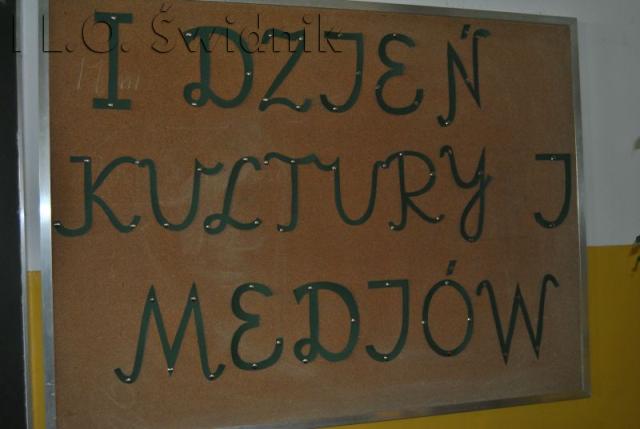 I L.O. Świdnik
I DZIEŃ
KULTURY I
MEDIÓW